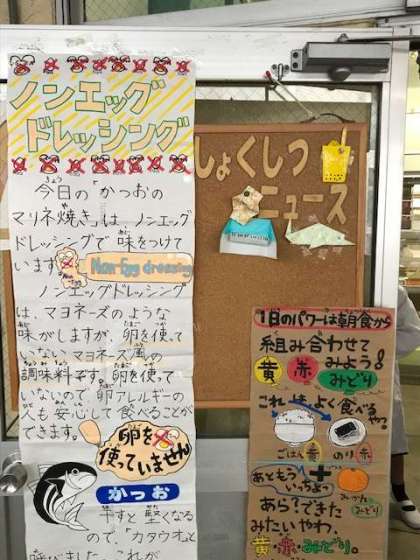 ノンエッグ
ドレッシング
今日の「かつおの
マリネ焼き」は、ノンエッグ
ドレッシングで味をつけて
います。
Non Egg dressing
ノンエッグドレッシング
は、マヨネーズのような
味がしますが、卵を使って
いないマヨネーズ風の
調味料です。卵を使って
いないので、卵アレルギーの
人も安心して食べることが
できます。
卵を
使っていません
かつお
干すと堅くなる
ので、「カタウオ」と
しょくしつ
ニュース
1日のパワーは朝食から
組み合わせて
黄 赤 みよう!
みどり
これはよく食べる
やつ。
ごはん 黄 のり 赤
あともう
いっちょう
みかん
みどり
あら?できた
みたいやわ、
黄・赤・みどり。